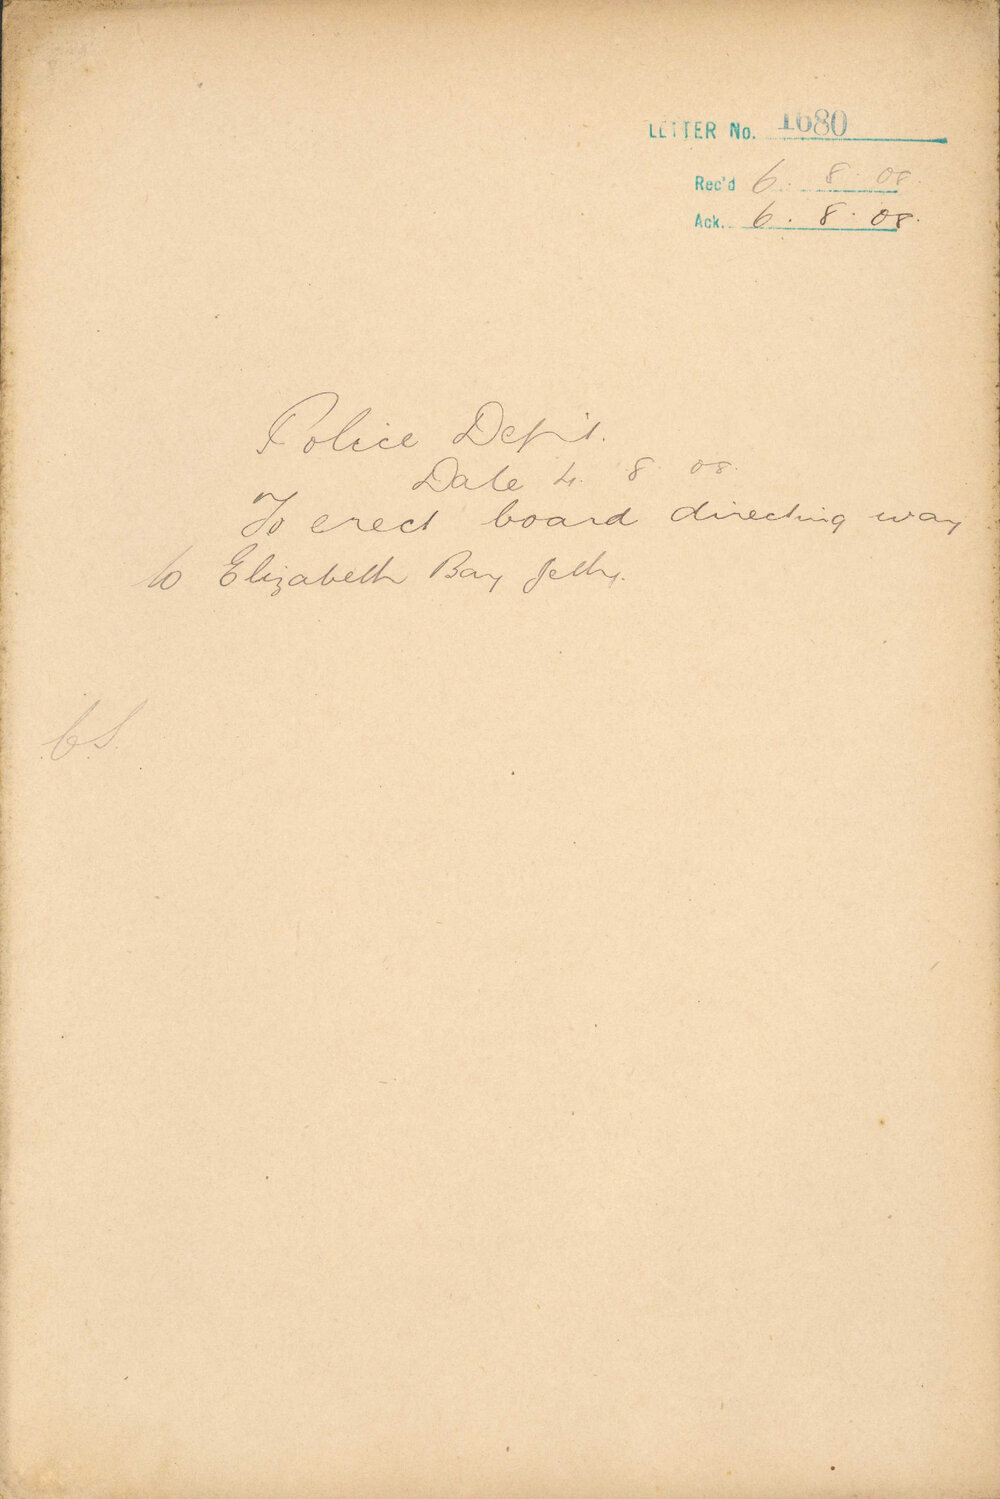 LETTER No. 1680
Rec'd 6. 8. 08.
Ack. 6. 8. 08.
Police Dep't.
Date 4. 8 08.
To erect board directing way
to Elizabeth Bay Jetty.
CS.